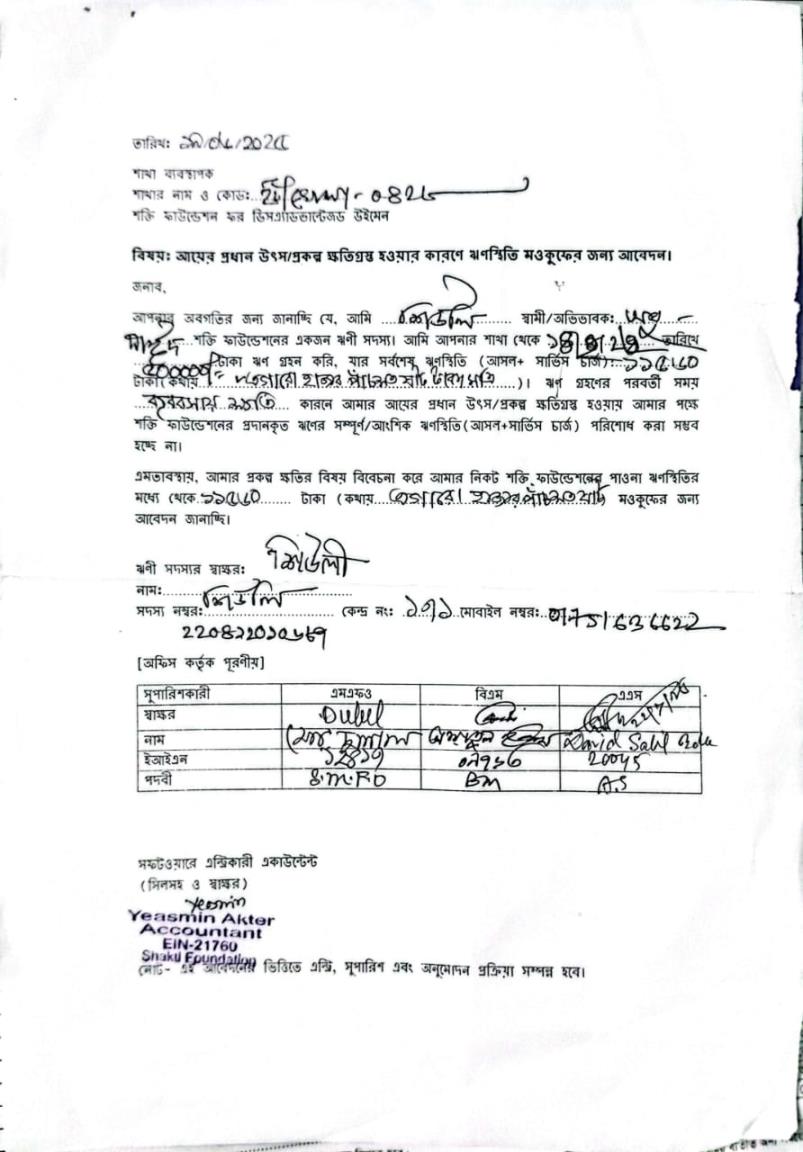 তারিখঃ
শাখা ব্যবস্থাপক
শাখার নাম ও কোডঃ - 0826
শক্তি ফাউন্ডেশন ফর ডিসএ্যাডভান্টেজড উইমেন
বিষয়ঃ আয়ের প্রধান উৎস/প্রকল্প ক্ষতিগ্রস্ত হওয়ার কারণে ঋণস্থিতি মওকুফের জন্য আবেদন।
জনাব,
আপনার অবগতির জন্য জানাচ্ছি যে, আমি শিউলি স্বামী/অভিভাবক:
শক্তি ফাউন্ডেশনের একজন ঋণী সদস্য। আমি আপনার শাখা থেকে তারিখে
টাকা ঋণ গ্রহন করি, যার সর্বশেষ ঋণস্থিতি (আসল+ সার্ভিস চার্জ): ১১৫৬০
টাকা(কথায় এগারো হাজার পাঁচশত ষাট টাকা মাত্র)। ঋণ গ্রহণের পরবর্তী সময়
ব্যবসায় ক্ষতি কারনে আমার আয়ের প্রধান উৎস/প্রকল্প ক্ষতিগ্রস্ত হওয়ায় আমার পক্ষে
শক্তি ফাউন্ডেশনের প্রদানকৃত ঋণের সম্পূর্ণ/আংশিক ঋণস্থিতি(আসল+সার্ভিস চার্জ) পরিশোধ করা সম্ভব
হচ্ছে না।
এমতাবস্থায়, আমার প্রকল্প ক্ষতির বিষয় বিবেচনা করে আমার নিকট শক্তি ফাউন্ডেশনের পাওনা ঋণস্থিতির
মধ্যে থেকে ১১৫৬০ টাকা (কথায় এগারো হাজার পাঁচশত ষাট মওকুফের জন্য
আবেদন জানাচ্ছি।
ঋণী সদস্যর স্বাক্ষর: শিউলী
নাম: শিউলি
সদস্য নম্বর: কেন্দ্র নং: ১৭১ মোবাইল নম্বর: 01751636622
[অফিস কর্তৃক পূরণীয়]
সুপারিশকারী এমএফও বিএম এএস
স্বাক্ষর Dulul
নাম David Saul
ইআইএন 20045
পদবী S.M.FO BM A.S
সফটওয়ারে এন্ট্রিকারী একাউন্টেন্ট
(সিলসহ ও স্বাক্ষর)
Yeasmin
Yeasmin Akter
Accountant
EIN-21760
Shakti Foundation
নোট- এই আবেদনের ভিত্তিতে এন্ট্রি, সুপারিশ এবং অনুমোদন প্রক্রিয়া সম্পন্ন হবে।